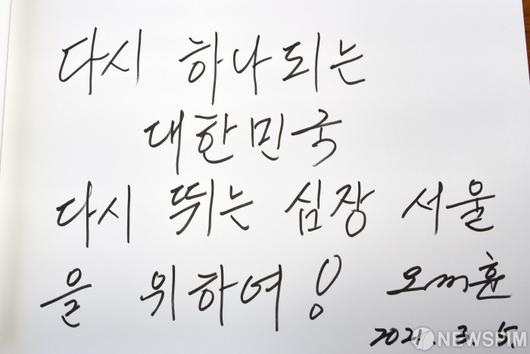 다시 하나되는
대한민국
다시 뛰는 심장 서울
을 위하여! 오세훈
2021. 3. 5.
NEWSPIM